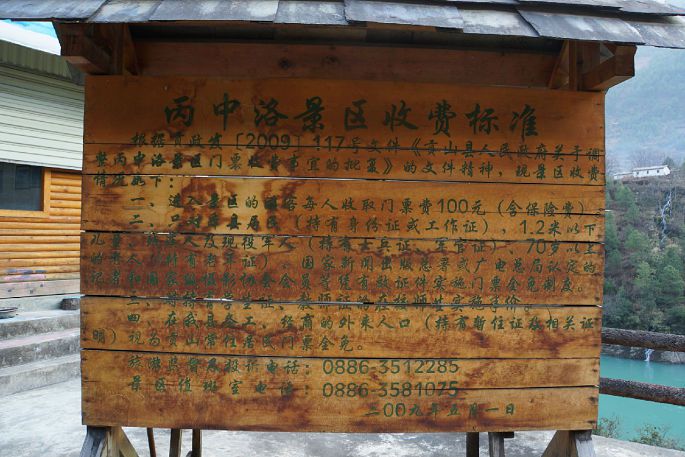 丙中洛景区收费标准
根据贡政发〔2009〕117号文件《贡山县人民政府关于调
整丙中洛景区门票收费事宜的批复》的文件精神，现景区收费
情况如下：
一、进入景区的游客每人收取门票费100元（含保险费）
二、口对原县居民（持有身份证或工作证）、1.2米以下
儿童、残疾人及现役军人（持有士兵证、军官证）、70岁以上
老人（持有老年证）、国家新闻出版总署或广电总局认定的
记者和国家级摄影协会会员等凭有效证件实施门票全免制度。
三、学生证、教师证的在校师生实施半价。
四、在我县务工、经商的外来人口（持有暂住证及相关证
明）视为贡山常住居民门票全免。
旅游监督及投诉电话：0886-3512285
景区值班室电话：0886-3581075
二00九年五月一日